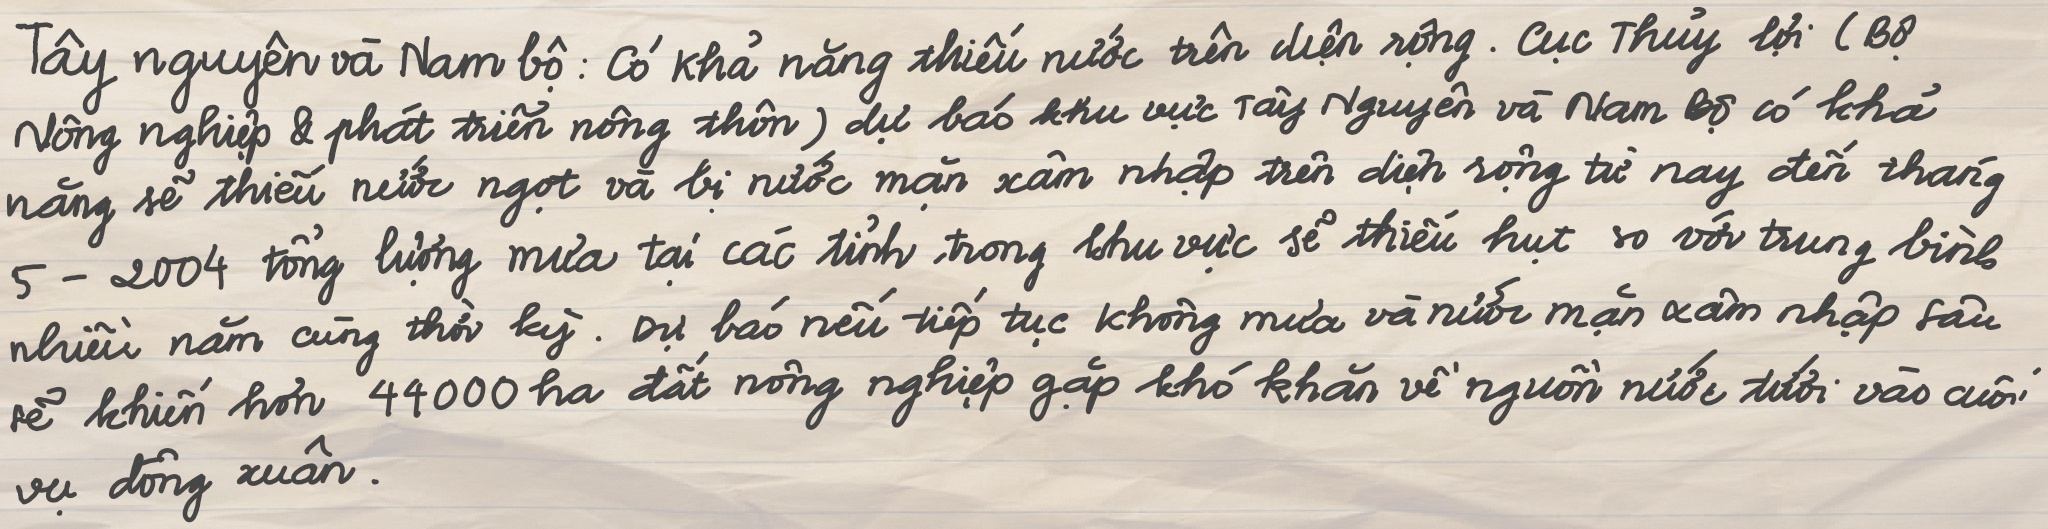 Tây nguyên và Nam bộ : Có khả năng thiếu nước trên diện rộng . Cục Thủy lợi ( Bộ
Nông nghiệp & phát triển nông thôn ) dự báo khu vực Tây Nguyên và Nam Bộ có khả
năng sẽ thiếu nước ngọt và bị nước mặn xâm nhập trên diện rộng từ nay đến tháng
5 - 2004 tổng lượng mưa tại các tỉnh trong khu vực sẽ thiếu hụt so với trung bình
nhiều năm cùng thời kỳ . Dự báo nếu tiếp tục không mưa và nước mặn xâm nhập sâu
sẽ khiến hơn 44000 ha đất nông nghiệp gặp khó khăn về nguồn nước tưới vào cuối
vụ đông xuân .